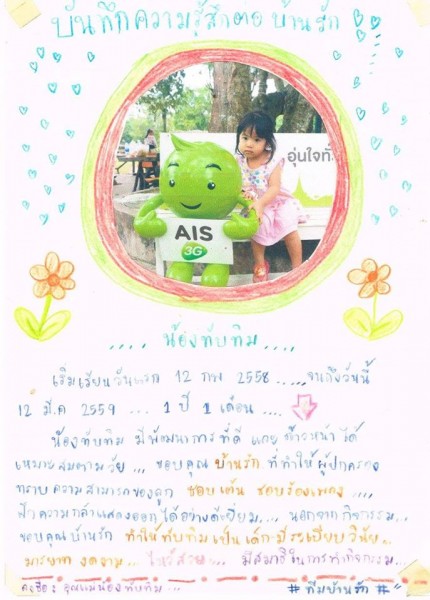 บันทึกความรู้สึกต่อ บ้านรัก
อุ่นใจทั่
AIS
3G
.... น้องทับทิม ....
เริ่มเรียนวันแรก 12 กพ 2558 ..... จนถึงวันนี้
12 มี.ค 2559 ... 1 ปี 1 เดือน ....
น้องทับทิม มีพัฒนาการที่ดี และก้าวหน้าได้
เหมาะสมตามวัย ... ขอบคุณ บ้านรัก ที่ทำให้ผู้ปกครอง
ทราบความสามารถของลูก ชอบเต้น ชอบร้องเพลง ....
มีความกล้าแสดงออกได้อย่างดีเยี่ยม.... นอกจากกิจกรรม...
ขอบคุณบ้านรัก ทำให้ทับทิมเป็นเด็กมีระเบียบวินัย..
มารยาทงดงาม... ไหว้สวย... มีสมาธิในการทำกิจกรรม...
ลงชื่อ คุณแม่น้องทับทิม ... # ทีมบ้านรัก #